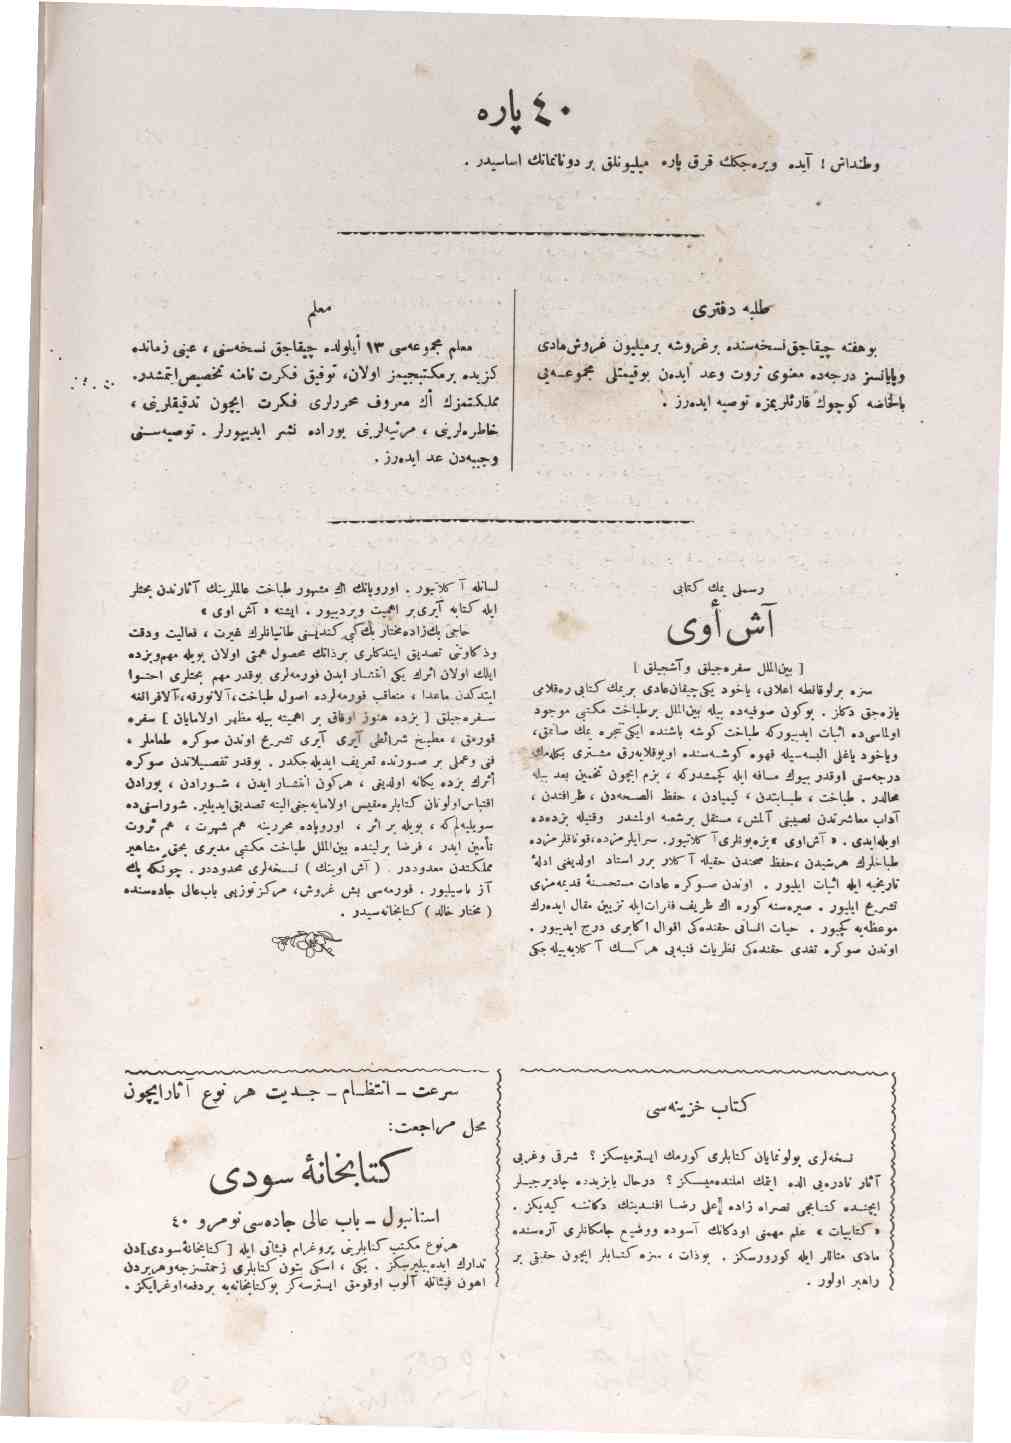 ٤٠ پاره
وطنداش ! آیده ویره‌جكك قرق پاره میلیونلق بر دونانمانك اساسیدر .
طلبه دفتری
بوهفته چیقاجق نسخه‌سنده برغروشه برمیلیون غروش مادی
وپایانسز درجه‌ده معنوی ثروت وعد ایدن بوقیمتلی مجموعه‌یی
بالخاصه كوچوك قارئلریمزه توصیه ایده‌رز .
معلم
معلم مجموعه‌سی ١٣ أیلولده چیقاجق نسخه‌سنی ، عینی زمانده
كزیده برمكتبجیمز اولان، توفیق فكرت نامنه تخصیص ایتمشدر.
مملكتمزك أك معروف محررلری فكرت ایچون تدقیقلرینی ،
خاطره‌لرینی ، مرثیه‌لرینی بوراده نشر ایدییورلر . توصیه‌سنی
وجیبه‌دن عد ایده‌رز .
رسملی یمك كتابی
آش أوی
[ بین‌الملل سفره‌جیلق وآشجیلق ]
سزه برلوقانطه اعلانی، یاخود یكی چیقان عادی بریمك كتابی ره‌قلامی
یازه‌جق دكلز . بوكون صوفیه‌ده بیله بین‌الملل برطباخت مكتبی موجود
اولماسی‌ده اثبات ایدییوركه طباخت كوشه باشنده ایكی تنجره یمك صاتمق،
ویاخود یاغلی البسه‌سیله قهوه كوشه‌سنده اویوقلایه‌رق مشتری بكله‌مك
درجه‌سنی اوقدر بیوك مسافه ایله كچمشدركه ، بزم ایچون تخمین بعد بیله
محالدر . طباخت ، طبابتدن ، كیمیادن ، حفظ الصحه‌دن ، ظرافتدن ،
آداب معاشرتدن نصیبنی آلمش، مستقل برشعبه اولمشدر وقتیله بزده‌ده
اویله‌ایدی . « آش اوی » بزه بونلری آكلاتیور. سرایلرمزده، قوناقلرمزده
طباخلرك هرشیدن ، حفظ صحتدن حقیله آكلار برر استاد اولدیغنی ادلهٔ
تاریخیه ایله اثبات ایلیور . اوندن صوكره عادات مستحسنهٔ قدیمه‌مزی
تشریح ایلیور . صیره‌سنه كوره اك ظریف فقرات ایله تزیین مقال ایده‌رك
موعظه‌یه كچیور . حیات انسانی حقنده‌كی اقوال اكابری درج ایدییور .
اوندن صوكره تغدی حقنده‌كی نظریات فنیه‌یی هركسك آكلایه‌بیله جكی
لسانله آكلاتیور . اوروپانك اك مشهور طباخت عالملرینك آثارندن بحثلر
ایله كتابه آیری بر اهمیت ویردییور . ایشته « آش اوی »
حاجی بك‌زاده مختار بك كبی كندیسنی طانیانلرك غیرت ، فعالیت ودقت
وذكاوتنی تصدیق ایتدكلری برذاتك محصول همتی اولان بویله مهم وبزده
ایلك اولان اثرك یكی انتشار ایدن فورمه‌لری بوقدر مهم بحثلری احتوا
ایتدكدن ماعدا ، متعاقب فورمه‌لرده اصول طباخت، آلاتورقه، آلافرانغه
سفره‌جیلق [ بزده هنوز اوفاق بر اهمیته بیله مظهر اولامایان ] سفره
قورمق ، مطبخ شرائطی آیری آیری تشریح اوندن صوكره طعاملر ،
فنی وعملی بر صورتده تعریف ایدیله‌جكدر . بوقدر تفصیلاتدن صوكره
أثرك بزده یكانه اولدیغی ، هركون انتشار ایدن ، شورادن ، بورادن
اقتباس اولونان كتابلره مقیس اولامایه‌جغی البته تصدیق ایدیلیر. شوراسنی‌ده
سویلیه‌لم كه ، بویله بر اثر ، اوروپاده محررینه هم شهرت ، هم ثروت
تأمین ایدر ، فرضا برلینده بین‌الملل طباخت مكتبی مدیری بحق مشاهیر
مملكتدن معدوددر . ( آش اوینك ) نسخه‌لری محدوددر . چونكه پك
آز باصیلیور . فورمه‌سی بش غروش، مركز توزیعی باب‌عالی جاده‌سنده
( مختار خالد ) كتابخانه‌سیدر .
كتاب خزینه‌سی
نسخه‌لری بولونمایان كتابلری كورمك ایسترمیسكز ؟ شرقی وغربی
آثار نادره‌یی الده ایتمك املنده‌میسكز ؟ درحال بایزیدده چادیرجیلر
ایچنده كتابجی نصراه زاده علی رضا افندینك دكاننه كیدیكز .
« كتابیات » علم مهمنی اودكانك آسوده ووضیع جامكانلری آره‌سنده
مادی مثاللر ایله كورورسكز . بوذات ، سزه كتابلر ایچون حقیقی بر
راهبر اولور .
سرعت ـ انتظام ـ جدیت هر نوع آثار ایچون
محل مراجعت:
كتابخانهٔ سودی
استانبول ـ باب عالی جاده‌سی نومرو ٤٠
هرنوع مكتب كتابلرینی پروغرام فیئاتی ایله [كتابخانهٔ سودی]دن
تدارك ایده‌بیلیرسكز . یكی ، اسكی بتون كتابلری زحمتسزجه وهریردن
اهون فیئاتله آلوب اوقومق ایسترسه‌كز بوكتابخانه‌یه بردفعه اوغرایكز .